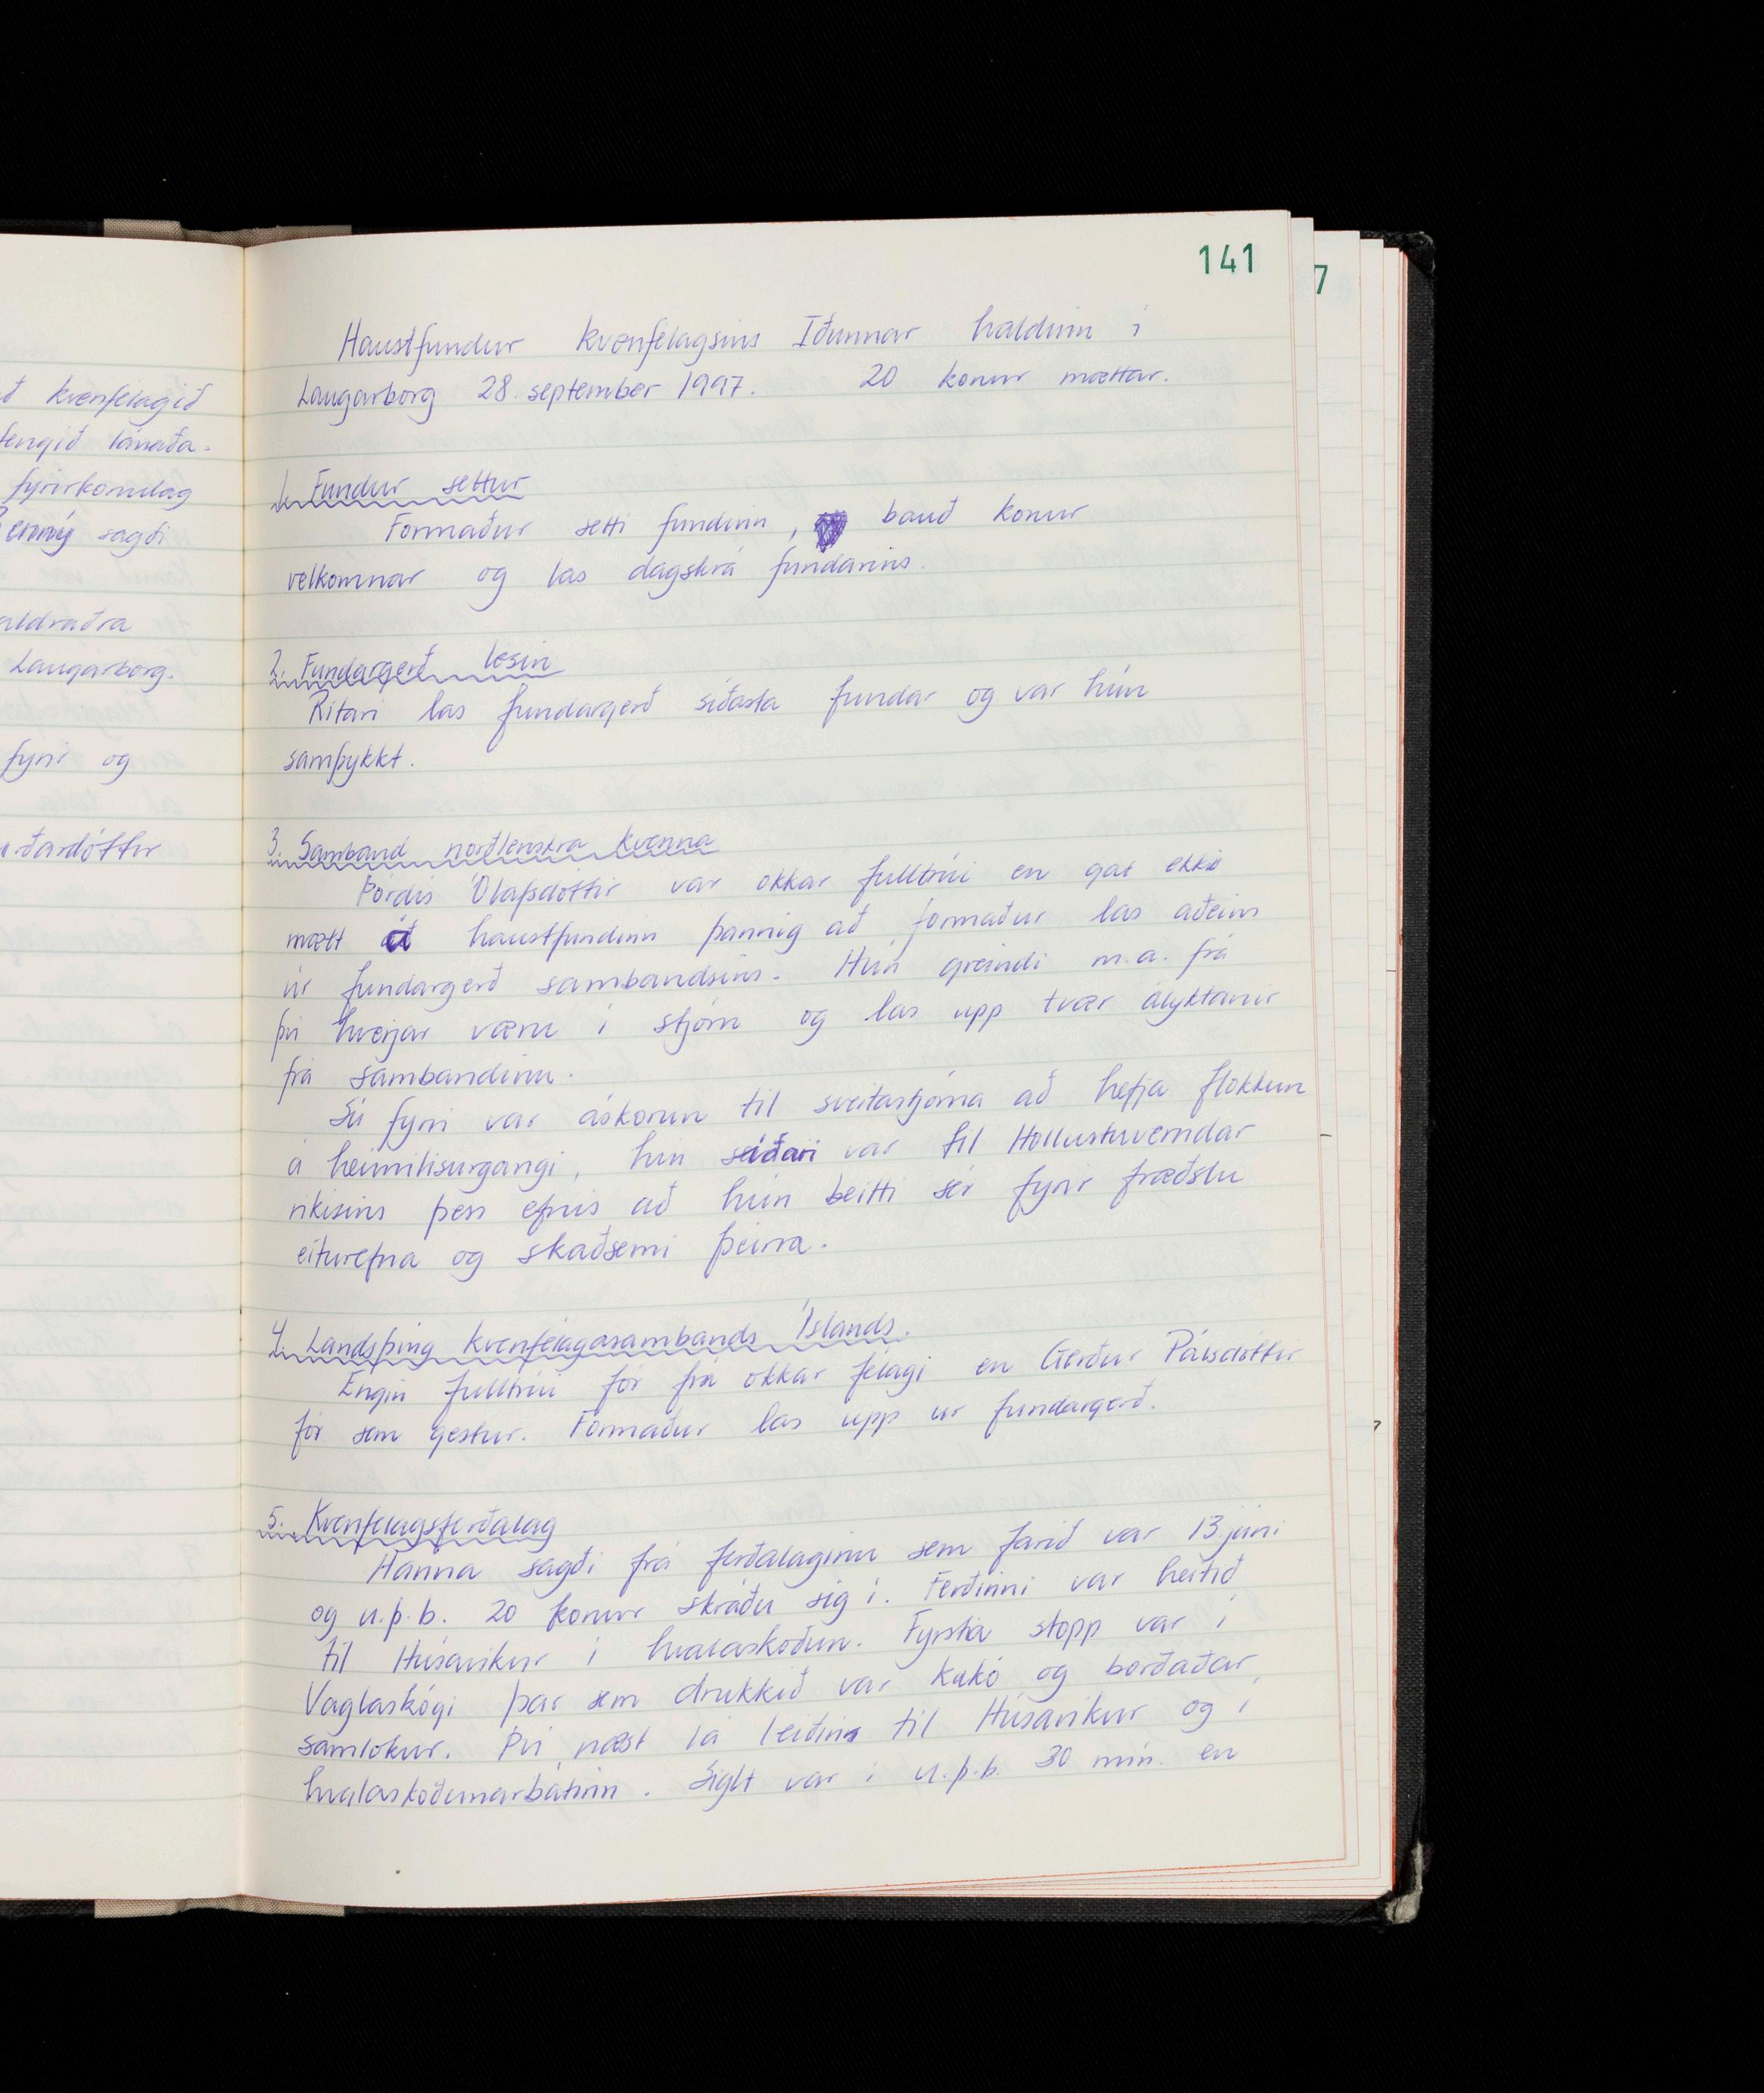 ð kvenfélagið
fengið lánaða.
fyrirkomulag
Benný sagði
aldraðra
Laugarborg.
fyrir og
ðardóttir
141
7
Haustfundur kvenfélagsins Iðunnar haldinn í
Laugarborg 28. september 1997. 20 konur mættar.
1. Fundur settur
Formaður setti fundinn, bauð konur
velkomnar og las dagskrá fundarins.
2. Fundargerð lesin
Ritari las fundargerð síðasta fundar og var hún
samþykkt.
3. Samband norðlenskra kvenna
Þórdís Ólafsdóttir var okkar fulltrúi en gat ekki
mætt á haustfundinn þannig að formaður las aðeins
úr fundargerð sambandsins. Hún greindi m.a. frá
því hverjar væru í stjórn og las upp tvær ályktanir
frá sambandinu.
Sú fyrri var áskorun til sveitastjórna að hefja flokkun
á heimilisúrgangi, hin síðari var til Hollustuverndar
ríkisins þess efnis að hún beitti sér fyrir fræðslu
eiturefna og skaðsemi þeirra.
4. Landsþing kvenfélagasambands Íslands.
Engin fulltrúi fór frá okkar félagi en Gerður Pálsdóttir
fór sem gestur. Formaður las upp úr fundargerð.
5. Kvenfélagsferðalag
Hanna sagði frá ferðalaginu sem farið var 13. júní
og u.þ.b. 20 konur skráðu sig í. Ferðinni var heitið
til Húsavíkur í hvalaskoðun. Fyrsta stopp var í
Vaglaskógi þar sem drukkið var kakó og borðaðar
samlokur. Því næst lá leiðin til Húsavíkur og í
hvalaskoðunarbátinn. Siglt var í u.þ.b. 30 mín. en